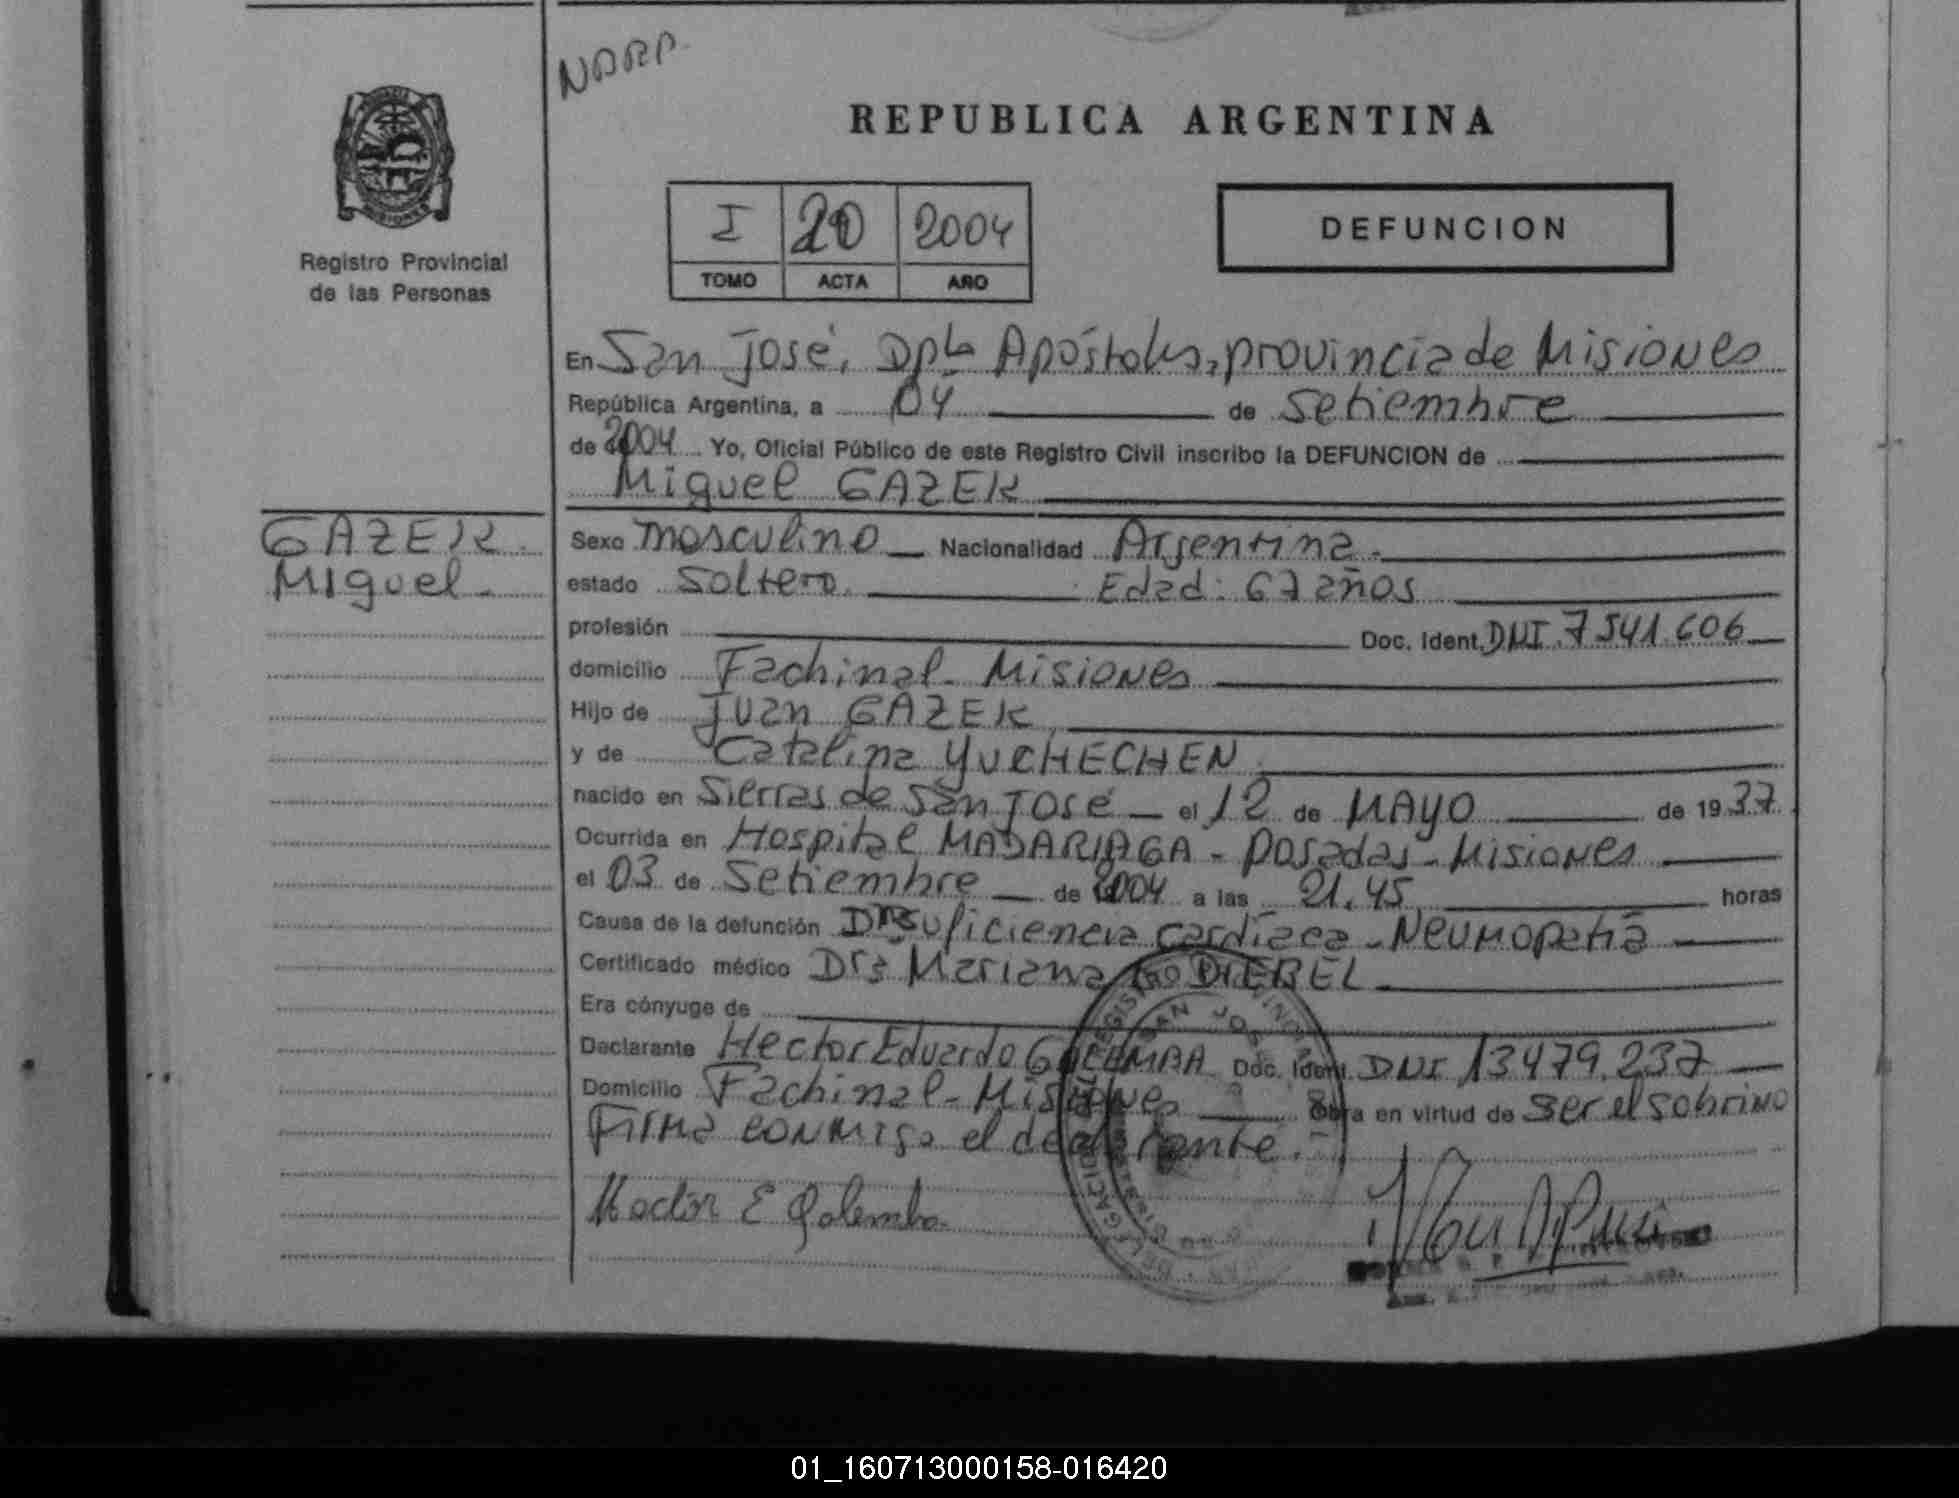 NARA
REPUBLICA ARGENTINA
I 20 2004
TOMO ACTA AÑO
DEFUNCION
Registro Provincial
de las Personas
En San José, Dpto Apóstoles, provincia de Misiones
República Argentina, a 04 de Setiembre
de 2004 Yo, Oficial Público de este Registro Civil inscribo la DEFUNCION de
Miguel GAZEK
GAZEK
Miguel
Sexo masculino Nacionalidad Argentina.
estado Soltero. Edad: 67 años
profesión Doc. Ident. DNI. 7541.606
domicilio Fachinal - Misiones
Hijo de Juan GAZEK
y de Catalina YUCHECHEN
nacido en Sierras de San José el 12 de MAYO de 1937.
Ocurrida en Hospital MADARIAGA - Posadas - Misiones
el 03 de Setiembre de 2004 a las 21,45 horas
Causa de la defunción Insuficiencia cardíaca - Neumopatia
Certificado médico Dra Mariana DIEBEL
Era cónyuge de
Declarante Hector Eduardo GOLEMBA Doc. Ident. DNI 13479.237
Domicilio Fachinal - Misiones Obra en virtud de ser el sobrino
Firma conmigo el declarante.
Hector E Golemba
SAN JOSE
01_160713000158-016420